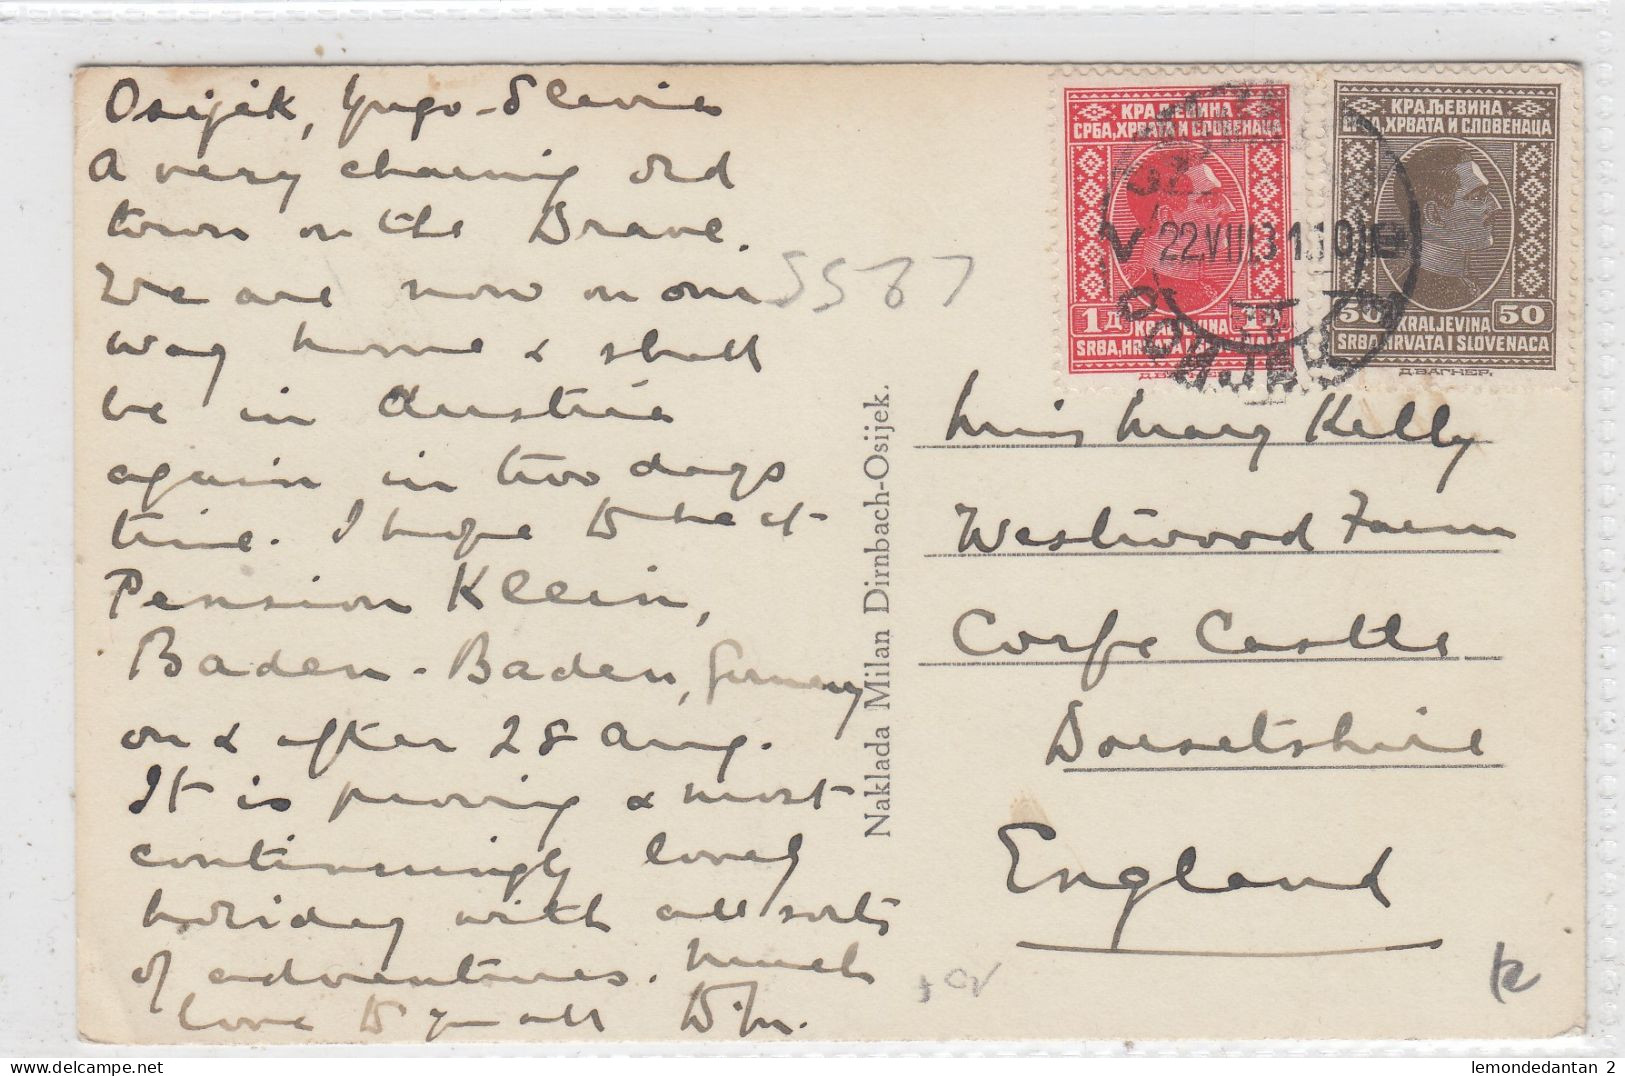 Osijek, Yugo-Slavia
A very charming old
town on the Drave.
We are now on our
way home & shall
be in Austria
again in two days
time. I hope to be at
Pension Klein,
Baden-Baden, Germany
on & after 28 Aug.
It is proving a most
continuingly lovely
holiday with all sorts
of adventures. Much
love to you all
5587
Naklada Milan Dirnbach-Osijek.
КРАЉЕВИНА
СРБА, ХРВАТА И СЛОВЕНАЦА
1Д
KRALJEVINA
SRBA, HRVATA I SLOVENACA
КРАЉЕВИНА
СРБА, ХРВАТА И СЛОВЕНАЦА
50 KRALJEVINA 50
SRBA, HRVATA I SLOVENACA
Д.ВАГНЕР.
22.VIII.31.10
Miss Mary Kelly
Westwood Farm
Corfe Castle
Dorsetshire
England
lemondedantan 2